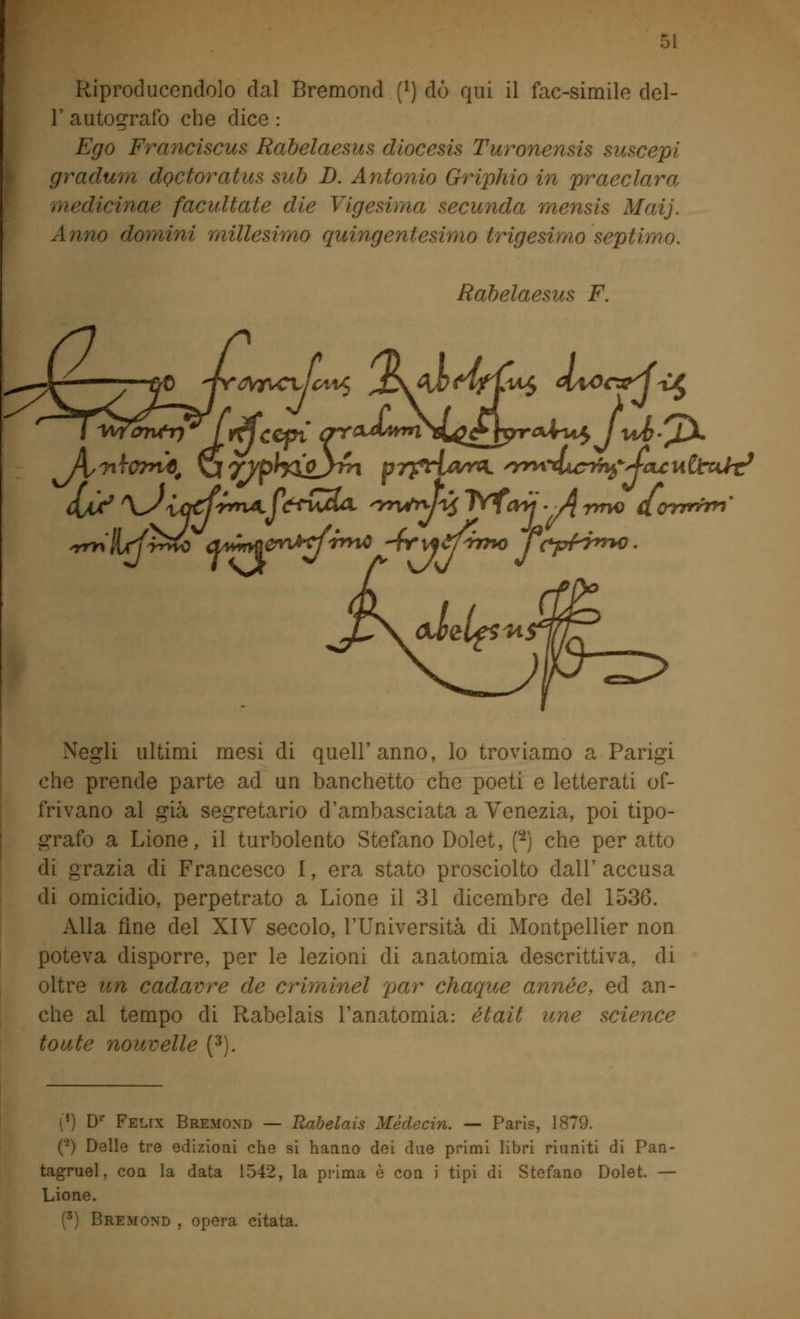 51
Riproducendolo dal Bremond (¹) dò qui il fac-simile del-
l' autografo che dice :
Ego Franciscus Rabelaesus diocesis Turonensis suscepi
gradum doctoratus sub D. Antonio Griphio in praeclara
medicinae facultate die Vigesima secunda mensis Maij.
Anno domini millesimo quingentesimo trigesimo septimo.
Rabelaesus F.
Ego franciscus Rabelęsus diocesis
turonen suscepi gradum doctoratus sub D.
Antonio Gryphio in pręclara medicinę facultate
die Vigesima secunda mensis Maij. Anno domini
millesimo quingentesimo trigesimo septimo.
Rabelęsus
Negli ultimi mesi di quell' anno, lo troviamo a Parigi
che prende parte ad un banchetto che poeti e letterati of-
frivano al già segretario d'ambasciata a Venezia, poi tipo-
grafo a Lione, il turbolento Stefano Dolet, (²) che per atto
di grazia di Francesco I, era stato prosciolto dall' accusa
di omicidio, perpetrato a Lione il 31 dicembre del 1536.
Alla fine del XIV secolo, l'Università di Montpellier non
poteva disporre, per le lezioni di anatomia descrittiva, di
oltre un cadavre de criminel par chaque année, ed an-
che al tempo di Rabelais l'anatomia: était une science
toute nouvelle (³).
(¹) Dr FELIX BREMOND — Rabelais Médecin. — Paris, 1879.
(²) Delle tre edizioni che si hanno dei due primi libri riuniti di Pan-
tagruel, con la data 1542, la prima è con i tipi di Stefano Dolet. —
Lione.
(³) BREMOND , opera citata.